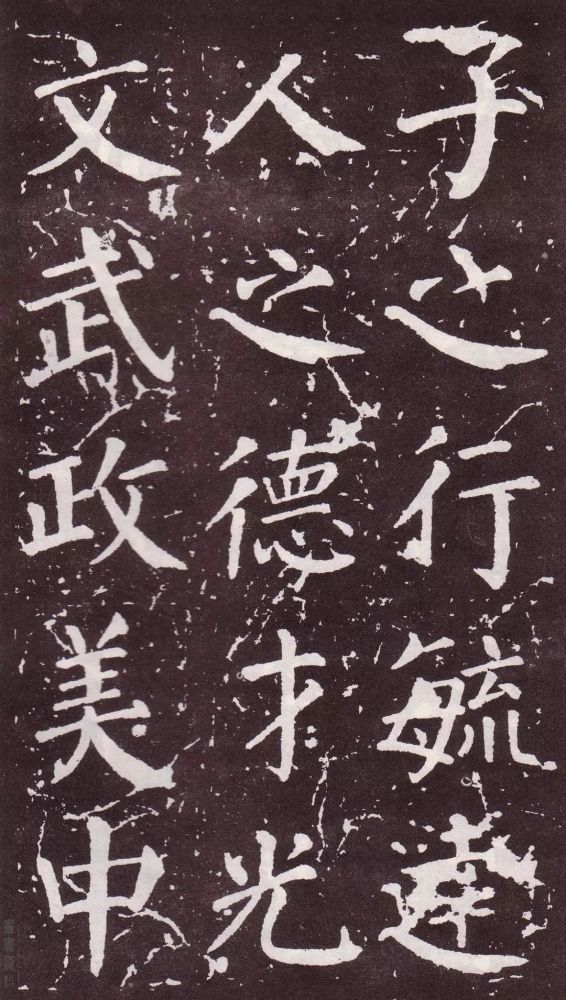 子之行毓達
人之德才光
文武政美中